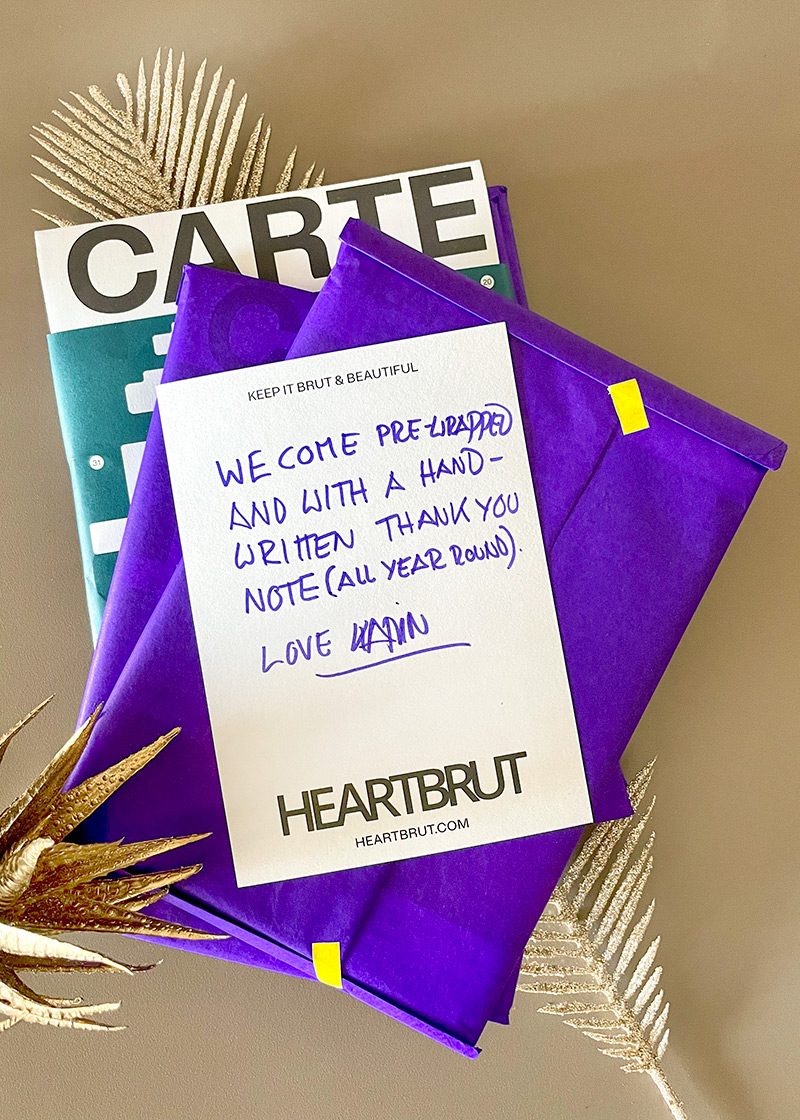 CARTE
20
31
KEEP IT BRUT & BEAUTIFUL
WE COME PRE-WRAPPED
AND WITH A HAND-
WRITTEN THANK YOU
NOTE (ALL YEAR ROUND).
LOVE KARIN
HEARTBRUT
HEARTBRUT.COM